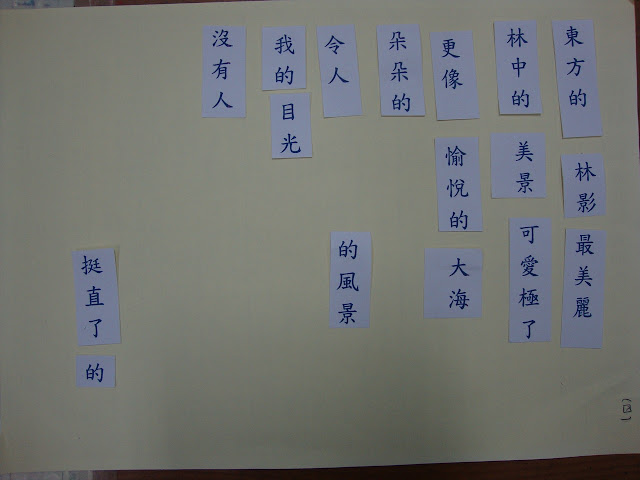 東方的林影最美麗
林中的美景可愛極了
更像愉悅的大海
朵朵的
令人的風景
我的目光
沒有人
挺直了的
(四)